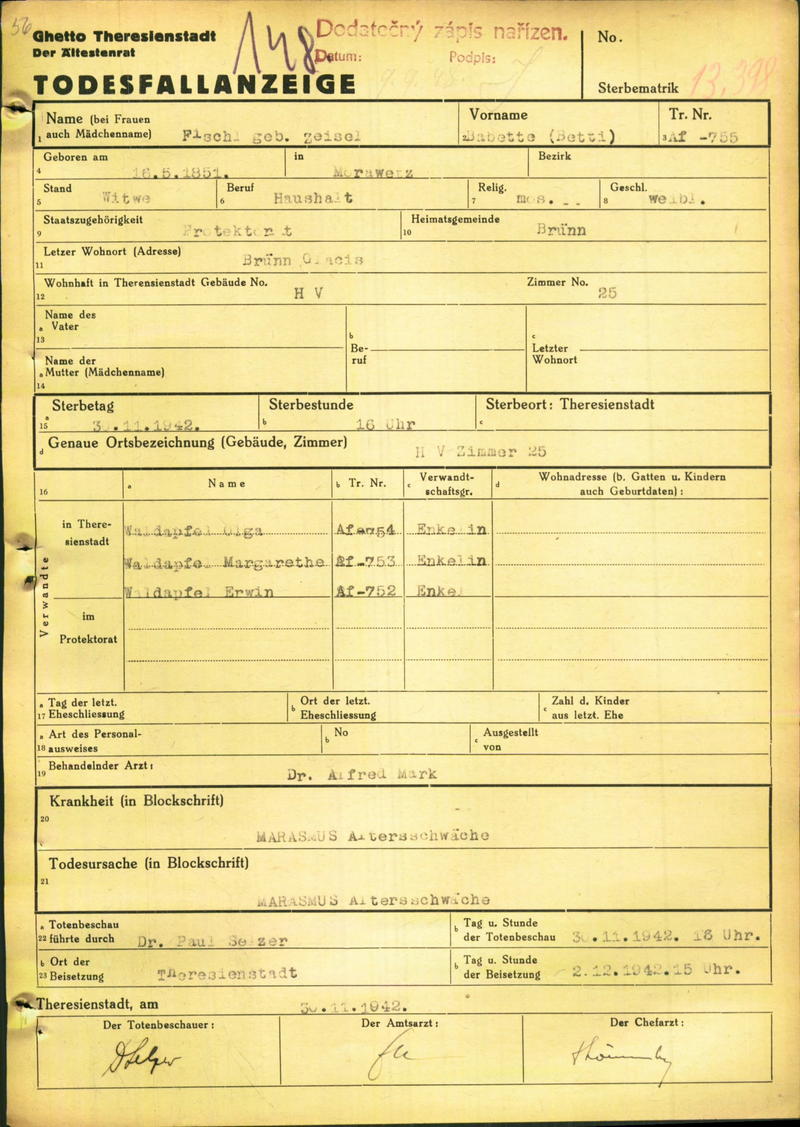 56
Ghetto Theresienstadt
Der Ältestenrat
148
Dodatečný zápis nařízen.
Datum: Podpis:
No.
TODESFALLANZEIGE
Sterbematrik 13,398
Name (bei Frauen
1 auch Mädchenname) Fischl geb. Zeisel
Vorname
2 Babette (Betti)
Tr. Nr.
3 Af -755
Geboren am
4 16.5.1851.
in Morawetz
Bezirk
Stand
5 Witwe
Beruf
6 Haushalt
Relig.
7 mos. _ _
Geschl.
8 weibl.
Staatszugehörigkeit
9 Protektorat
Heimatsgemeinde
10 Brünn
Letzer Wohnort (Adresse)
11 Brünn Glacis
Wohnhaft in Therensienstadt Gebäude No.
12 H V
Zimmer No.
25
Name des
a Vater
13
b
Be-
ruf
c
Letzter
Wohnort
Name der
a Mutter (Mädchenname)
14
Sterbetag
a
15 30.11.1942.
Sterbestunde
b 16 Uhr
Sterbeort: Theresienstadt
c
d Genaue Ortsbezeichnung (Gebäude, Zimmer)
H V Zimmer 25
16
a Name
b Tr. Nr.
c Verwandt-
schaftsgr.
d Wohnadresse (b. Gatten u. Kindern
auch Geburtdaten) :
Verwandte
in There-
sienstadt
Waldapfel Olga Af-754 Enkelin
Waldapfel Margarethe Af-753 Enkelin
Waldapfel Erwin Af-752 Enkel
im
Protektorat
a Tag der letzt.
17 Eheschliessung
b Ort der letzt.
Eheschliessung
c Zahl d. Kinder
aus letzt. Ehe
a Art des Personal-
18 ausweises
b No
c Ausgestellt
von
Behandelnder Arzt :
19 Dr. Alfred Mark
Krankheit (in Blockschrift)
20
MARASMUS Altersschwäche
Todesursache (in Blockschrift)
21
MARASMUS Altersschwäche
a Totenbeschau
22 führte durch Dr. Paul Selzer
b Tag u. Stunde
der Totenbeschau 30.11.1942. 18 Uhr.
b Ort der
23 Beisetzung Theresienstadt
b Tag u. Stunde
der Beisetzung 2.12.1942.15 Uhr.
Theresienstadt, am 30.11.1942.
Der Totenbeschauer :
Der Amtsarzt :
Der Chefarzt :
DSelzer